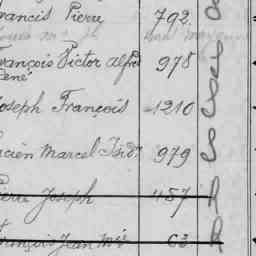 rancis Pierre 792.
rançois Victor Alfred 978
ené
oseph François 1210
ucien Marcel Isid 979
ierre Joseph 487
rançois Jean Mie 63